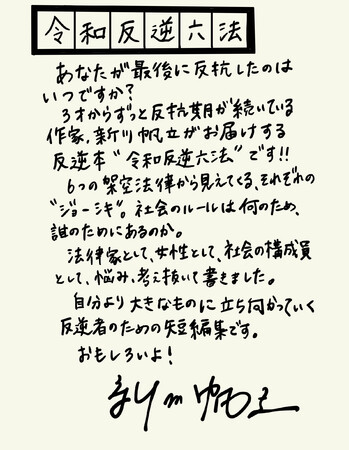 令和反逆六法
あなたが最後に反抗したのは
いつですか？
3才からずっと反抗期が続いている
作家、新川帆立がお届けする
反逆本“令和反逆六法”です!!
6つの架空法律から見えてくる、それぞれの
“ジョーシキ”。社会のルールは何のため、
誰のためにあるのか。
法律家として、女性として、社会の構成員
として、悩み、考え抜いて書きました。
自分より大きなものに立ち向かっていく
反逆者のための短編集です。
おもしろいよ！
新川帆立